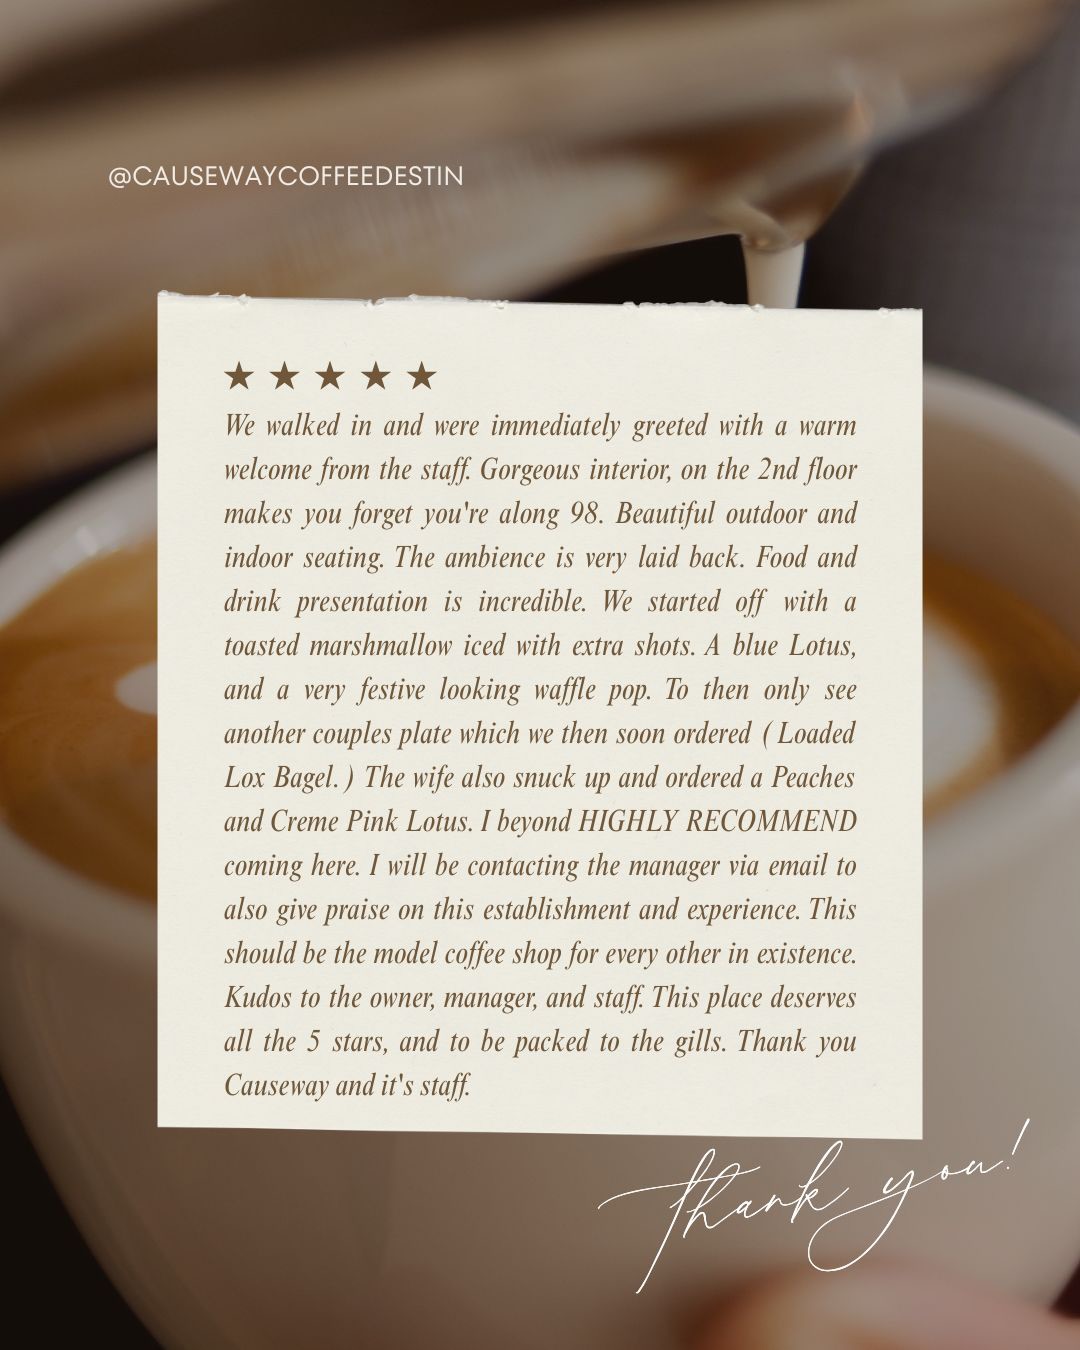 @CAUSEWAYCOFFEEDESTIN
★ ★ ★ ★ ★
We walked in and were immediately greeted with a warm
welcome from the staff. Gorgeous interior, on the 2nd floor
makes you forget you're along 98. Beautiful outdoor and
indoor seating. The ambience is very laid back. Food and
drink presentation is incredible. We started off with a
toasted marshmallow iced with extra shots. A blue Lotus,
and a very festive looking waffle pop. To then only see
another couples plate which we then soon ordered ( Loaded
Lox Bagel. ) The wife also snuck up and ordered a Peaches
and Creme Pink Lotus. I beyond HIGHLY RECOMMEND
coming here. I will be contacting the manager via email to
also give praise on this establishment and experience. This
should be the model coffee shop for every other in existence.
Kudos to the owner, manager, and staff. This place deserves
all the 5 stars, and to be packed to the gills. Thank you
Causeway and it's staff.
thank you!